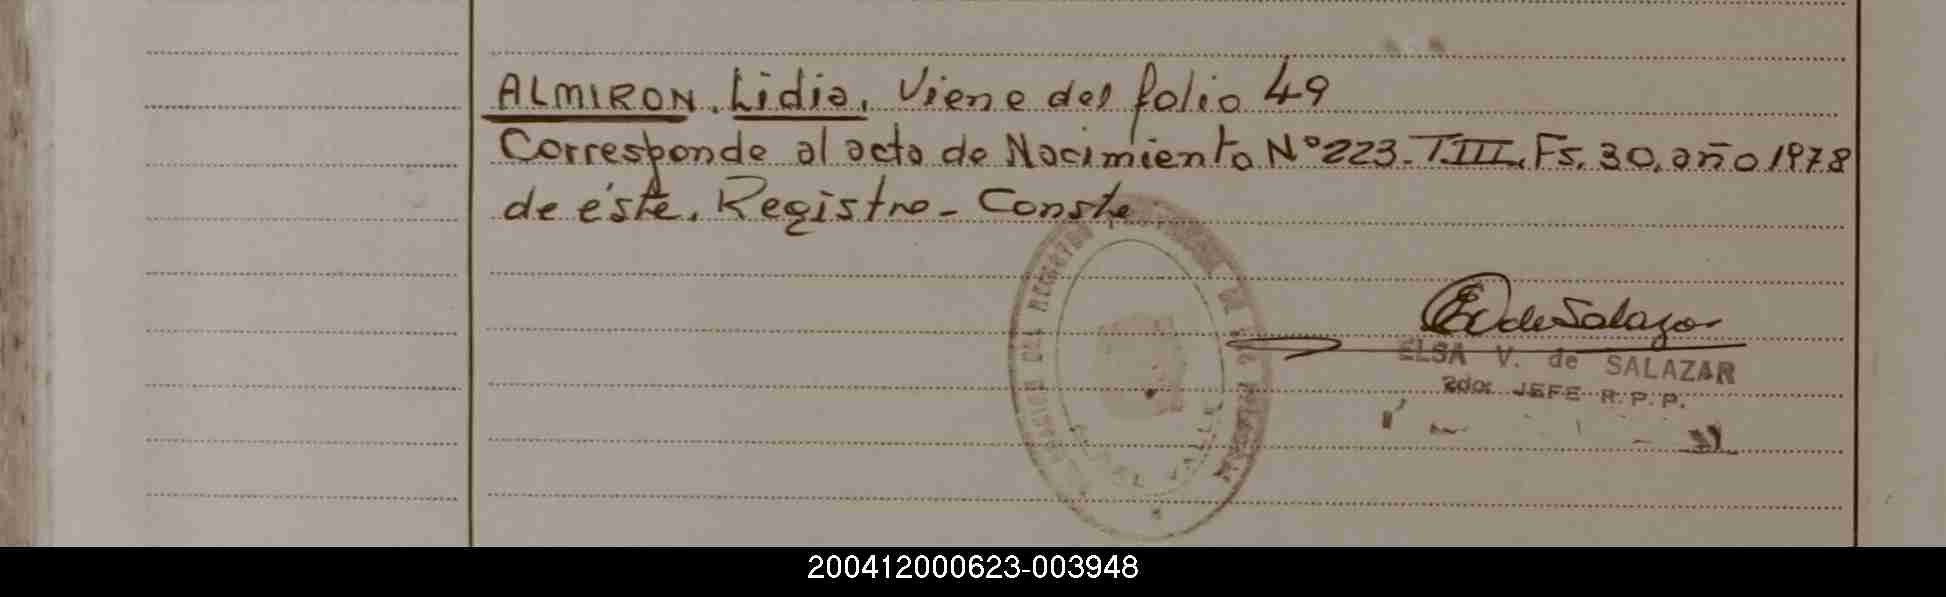 ALMIRON. Lidia. Viene del folio 49
Corresponde al acta de Nacimiento Nº 223. T.III. Fs. 30. año 1978
de éste. Registro - Conste
EV de Salazar
ELSA V. de SALAZAR
2do. JEFE R. P. P.
DEL REGISTRO
DE LAS
VALLE
200412000623-003948